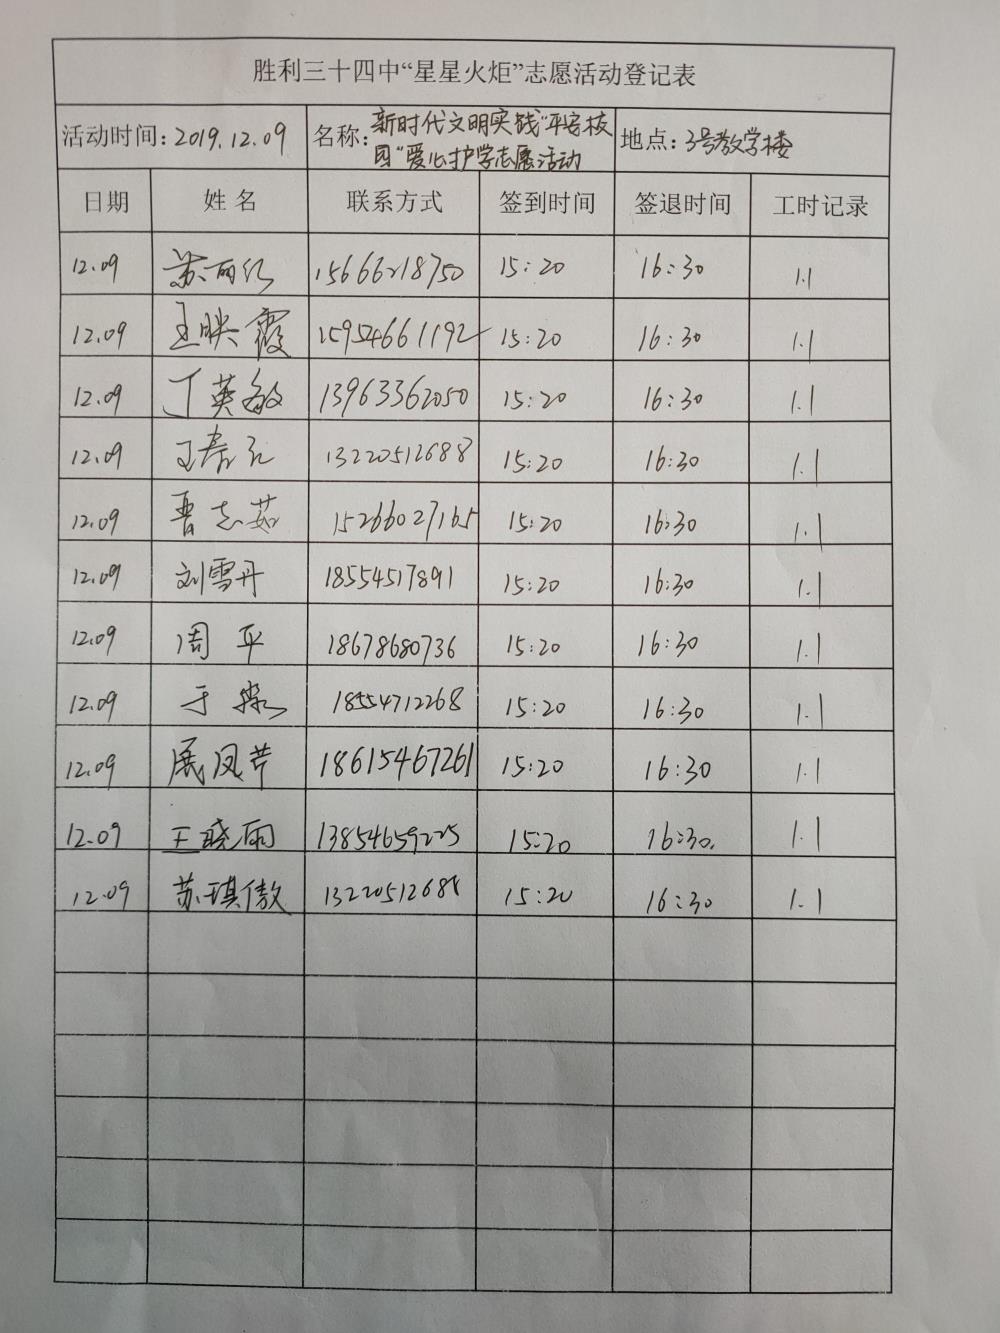 胜利三十四中“星星火炬”志愿活动登记表
活动时间：2019.12.09 名称：新时代文明实践“平安校园”爱心护学志愿活动 地点：3号教学楼
日期 姓名 联系方式 签到时间 签退时间 工时记录
12.09 苏丽红 15666218750 15:20 16:30 1.1
12.09 王映霞 15954661192 15:20 16:30 1.1
12.09 丁英敏 13963362050 15:20 16:30 1.1
12.09 13220512688 15:20 16:30 1.1
12.09 曹志茹 15266027165 15:20 16:30 1.1
12.09 刘雪丹 18554517891 15:20 16:30 1.1
12.09 周平 18678680736 15:20 16:30 1.1
12.09 于 18554712268 15:20 16:30 1.1
12.09 展凤芹 18615467261 15:20 16:30 1.1
12.09 王晓雨 13854659225 15:20 16:30. 1.1
12.09 苏琪傲 13220512688 15:20 16:30 1.1